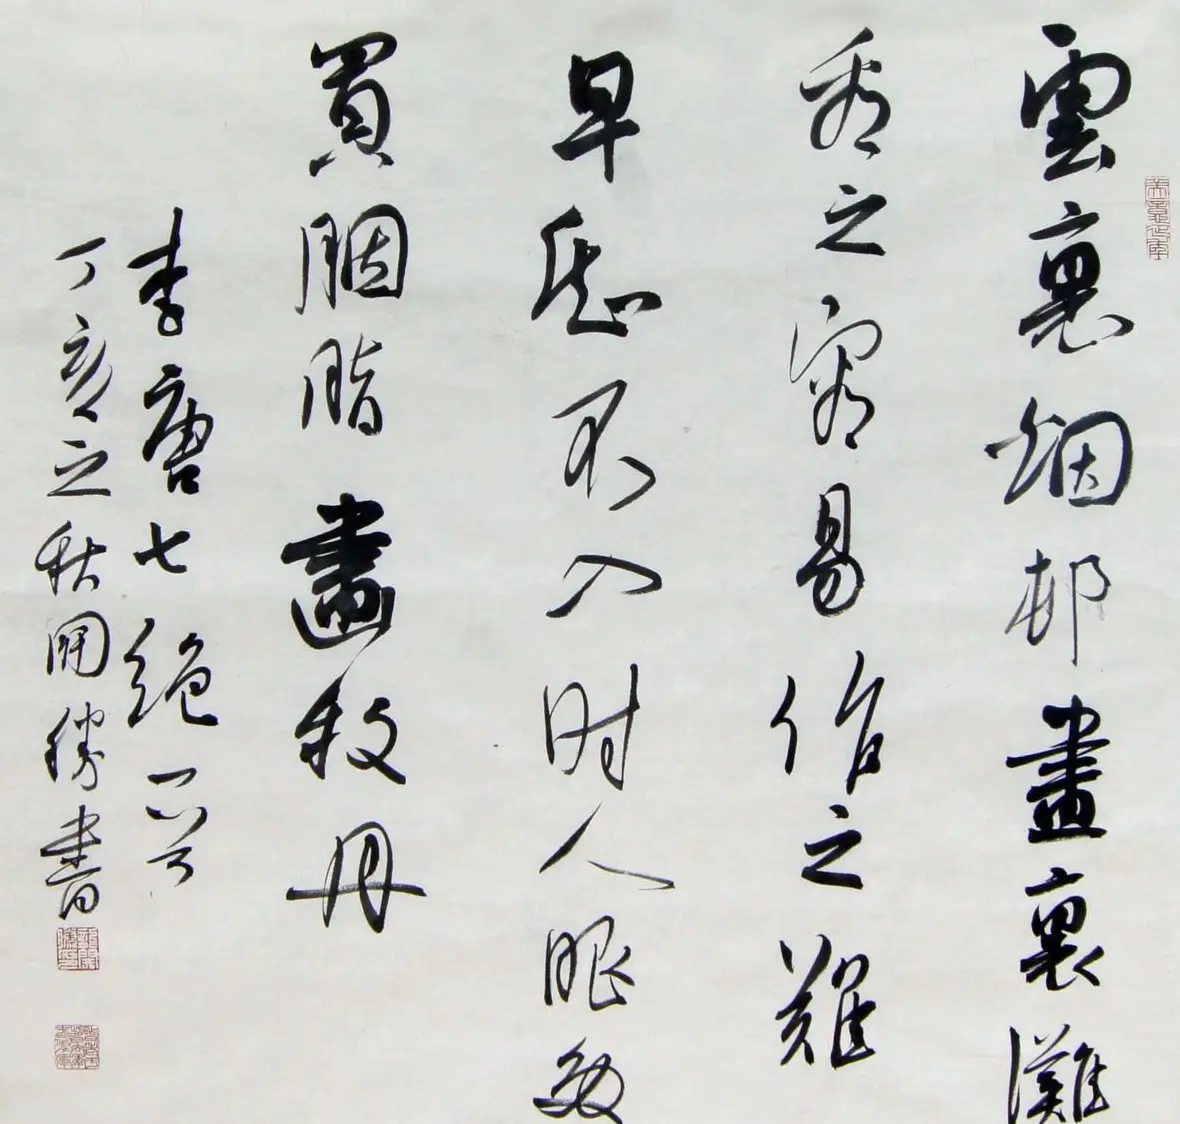 雲裏烟邨畫裏灘
看之容易作之難
早知不入时人眼多
買胭脂畫牡丹
李唐七絕一首
丁亥之秋開勝書